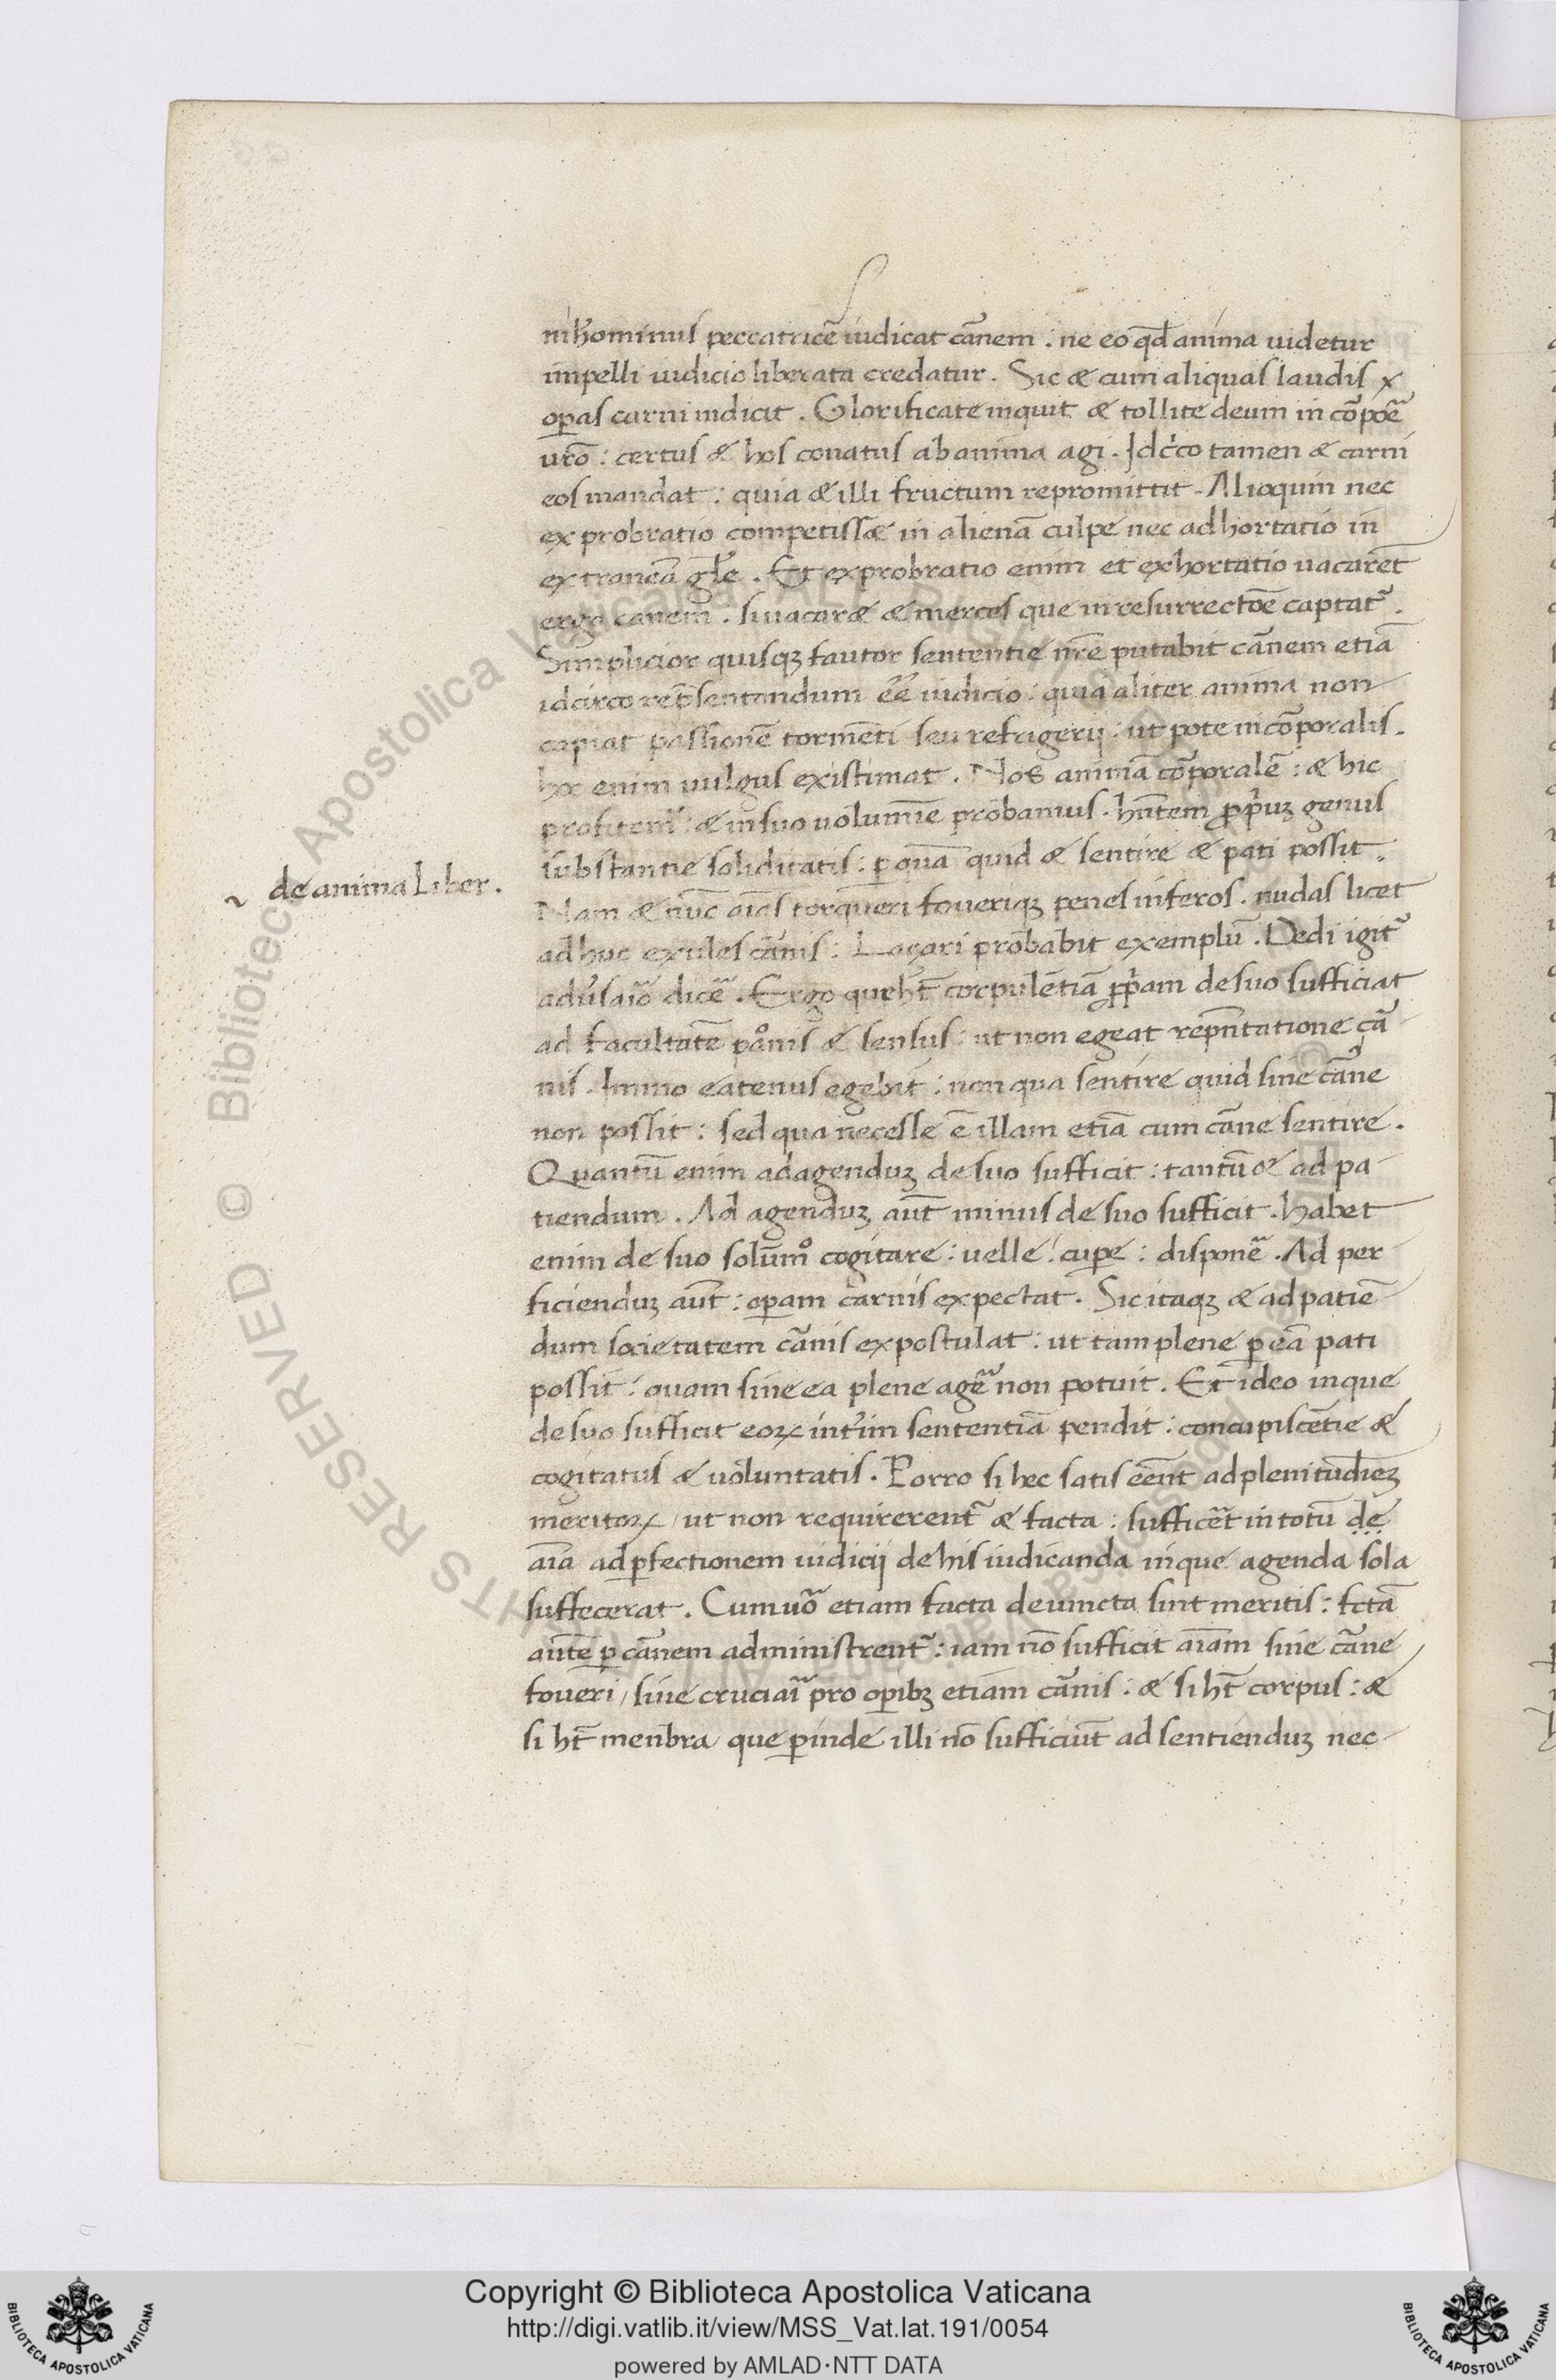 nihominus peccatricē iudicat cānem : ne eo qđ anima uidetur
impelli iudicio liberata credatur . Sic & cum aliquas laudis χ
opas carni indicit . Glorificate inquit & tollite deum in cōpoē
uro̅ : certus & hos conatus ab anima agi . Idcͥco tamen & carni
eos mandat : quia & illi fructum repromittit . Alioquin nec
exprobratio competiss& in alienā culpe nec adhortatio in
extraneā gl̅e . Et exprobratio enim et exhortatio uacaret
erga canem . si uacar& & merces que in resurrectōe captat᷑ .
Simplicior quisqꝫ fautor sententie nr̅e putabit cānem etiā
idcirco rep̅sentandum e̅e iudicio : quia aliter anima non
capiat passionē tormēti seu refrigerij : ut pote incōporalis .
hoc enim uulgus existimat . Nos animā cōporalē : & hic
profitem᷑ : & in suo uolumīe probamus . hn̅tem ꝓpͥuꝫ genus
substantie soliditatis : ꝑ quā quid & sentire & pati possit .
Nam & nūc aīas torqueri foueriqꝫ penes inferos . nudas licet
adhuc exules cānis : Laçari probabit exemplū . Dedi igit᷑
aduͥsaīo dice᷑ . Ergo que ht̅ corpulētiā ꝓpͥam de suo sufficiat
ad facultatē paͦnis & sensus : ut non egeat repn̅tatione cā
nis . Immo eatenus egebit : non qua sentire quid sine cāne
non possit : sed qua necesse ē illam etiā cum cāne sentire .
Quantū enim ad agenduꝫ de suo sufficit : tantū & ad pa-
tiendum . Ad agenduꝫ aut̅ minus de suo sufficit . habet
enim de suo solūmͦ cogitare : uelle : cuꝑe : disponē . Ad per
ficienduꝫ aut̅ : oꝑam carnis expectat . Sic itaqꝫ & ad patiē
dum societatem cānis expostulat : ut tam plene ꝑ eā pati
possit : quam sine ea plene agē non potuit . Et ideo in que
de suo sufficit eoꝝ intͥim sententiā pendit : concupiscētie &
cogitatus & uoluntatis . Porro si hec satis eēnt ad plenitudīeꝫ
meritoꝝ / ut non requirerent᷑ & facta : sufficēt in totū de
aīa ad ꝑfectionem iudicij de his iudicanda in que agenda sola
suffecerat . Cum uͦo etiam facta deuincta sint meritis : fctā
autē ꝑ cānem administrent᷑ : iam nō sufficit aīam sine cāne
foueri / siue cruciaī pro opibꝫ etiam cānis : & si ht̅ corpus : &
si ht̅ menbra que ꝑinde illi nō sufficiūt ad sentienduꝫ nec
de anima Liber .
Copyright © Biblioteca Apostolica Vaticana
http://digi.vatlib.it/view/MSS_Vat.lat.191/0054
powered by AMLAD·NTT DATA
BIBLIOTECA APOSTOLICA VATICANA
BIBLIOTECA APOSTOLICA VATICANA